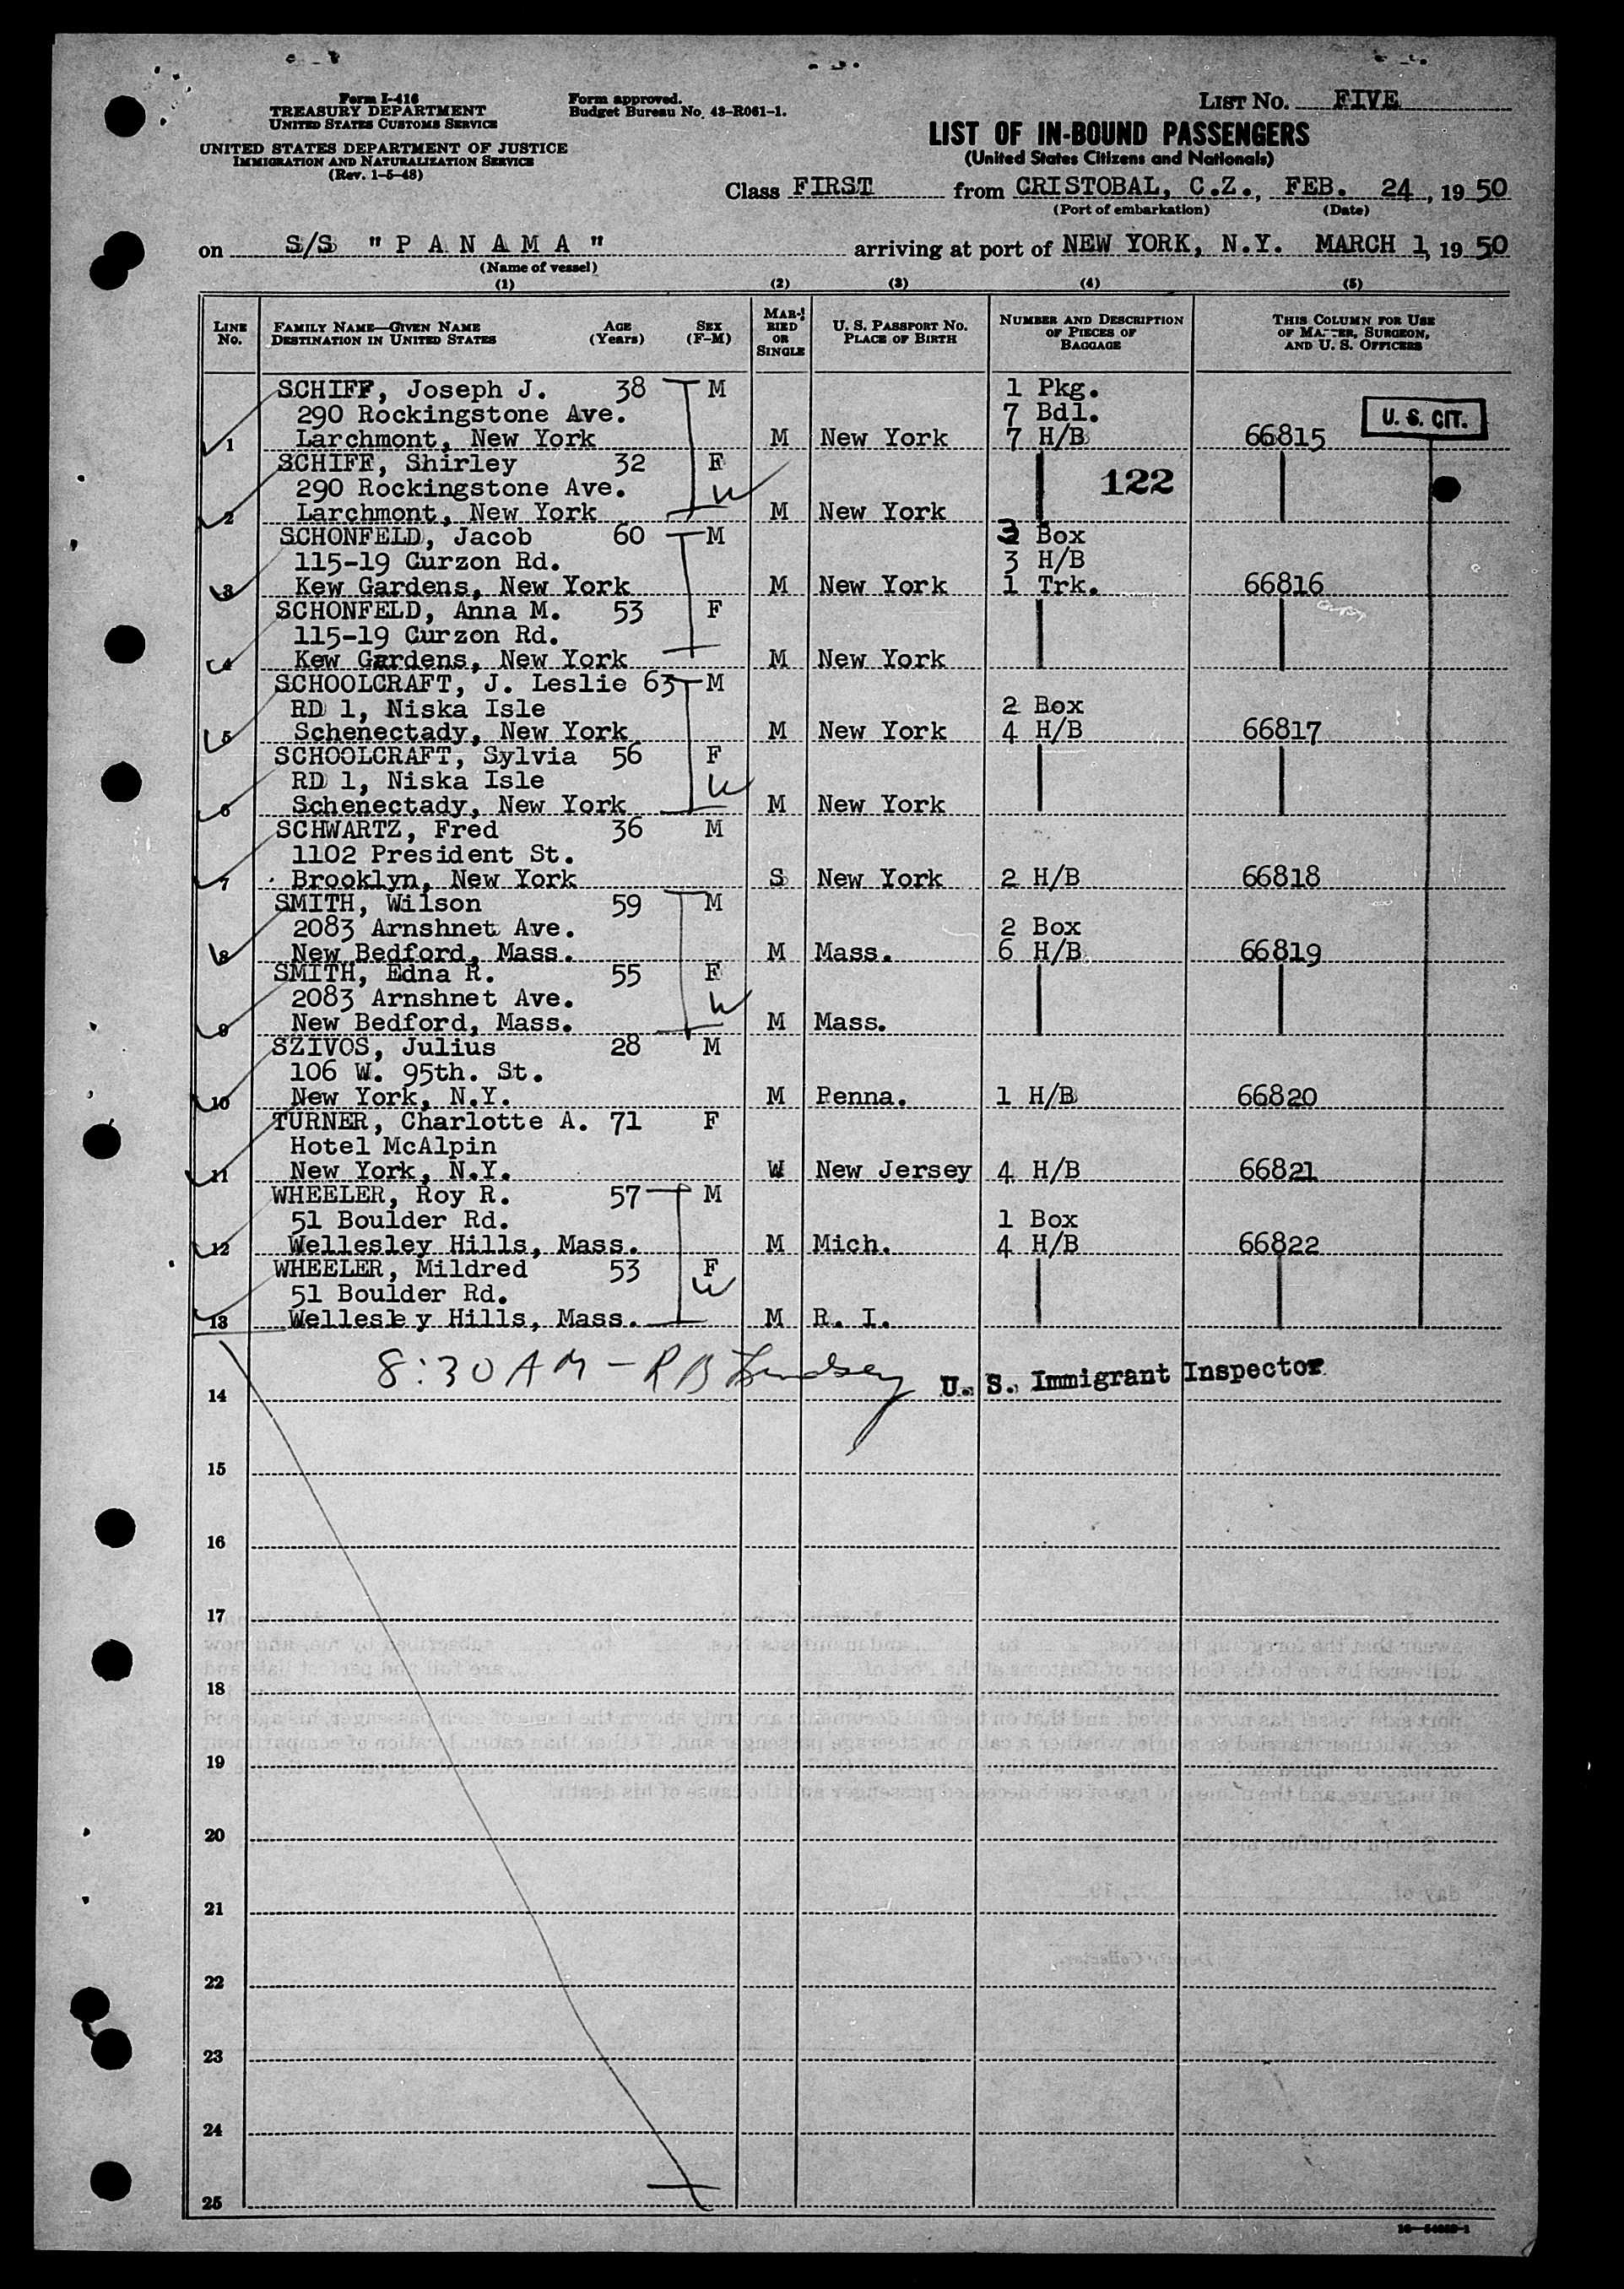 Form I-416
TREASURY DEPARTMENT
UNITED STATES CUSTOMS SERVICE
UNITED STATES DEPARTMENT OF JUSTICE
IMMIGRATION AND NATURALIZATION SERVICE
(Rev. 1-5-48)
Form approved.
Budget Bureau No. 43-R061-1.
LIST No. FIVE
LIST OF IN-BOUND PASSENGERS
(United States Citizens and Nationals)
Class FIRST from CRISTOBAL, C.Z., FEB. 24, 1950
(Port of embarkation) (Date)
on S/S "P A N A M A" arriving at port of NEW YORK, N.Y. MARCH 1, 1950
(Name of vessel)
(1) (2) (3) (4) (5)
LINE No. FAMILY NAME—GIVEN NAME DESTINATION IN UNITED STATES AGE (Years) SEX (F-M) MARRIED OR SINGLE U. S. PASSPORT NO. PLACE OF BIRTH NUMBER AND DESCRIPTION OF PIECES OF BAGGAGE THIS COLUMN FOR USE OF MASTER, SURGEON, AND U. S. OFFICERS
SCHIFF, Joseph J. 38 M 1 Pkg.
290 Rockingstone Ave. 7 Bdl. U. S. CIT.
1 Larchmont, New York M New York 7 H/B 66815
SCHIFF, Shirley 32 F
290 Rockingstone Ave. W 122
2 Larchmont, New York M New York
SCHONFELD, Jacob 60 M 3 Box
115-19 Curzon Rd. 3 H/B
3 Kew Gardens, New York M New York 1 Trk. 66816
SCHONFELD, Anna M. 53 F
115-19 Curzon Rd.
4 Kew Gardens, New York M New York
SCHOOLCRAFT, J. Leslie 63 M
RD 1, Niska Isle 2 Box
5 Schenectady, New York M New York 4 H/B 66817
SCHOOLCRAFT, Sylvia 56 F
RD 1, Niska Isle W
6 Schenectady, New York M New York
SCHWARTZ, Fred 36 M
1102 President St.
7 Brooklyn, New York S New York 2 H/B 66818
SMITH, Wilson 59 M
2083 Arnshnet Ave. 2 Box
8 New Bedford, Mass. M Mass. 6 H/B 66819
SMITH, Edna R. 55 F
2083 Arnshnet Ave. W
9 New Bedford, Mass. M Mass.
SZIVOS, Julius 28 M
106 W. 95th. St.
10 New York, N.Y. M Penna. 1 H/B 66820
TURNER, Charlotte A. 71 F
Hotel McAlpin
11 New York, N.Y. W New Jersey 4 H/B 66821
WHEELER, Roy R. 57 M
51 Boulder Rd. 1 Box
12 Wellesley Hills, Mass. M Mich. 4 H/B 66822
WHEELER, Mildred 53 F
51 Boulder Rd. W
13 Wellesley Hills, Mass. M R. I.
8:30 AM - R B Lindsey U. S. Immigrant Inspector
14
15
16
17
18
19
20
21
22
23
24
25